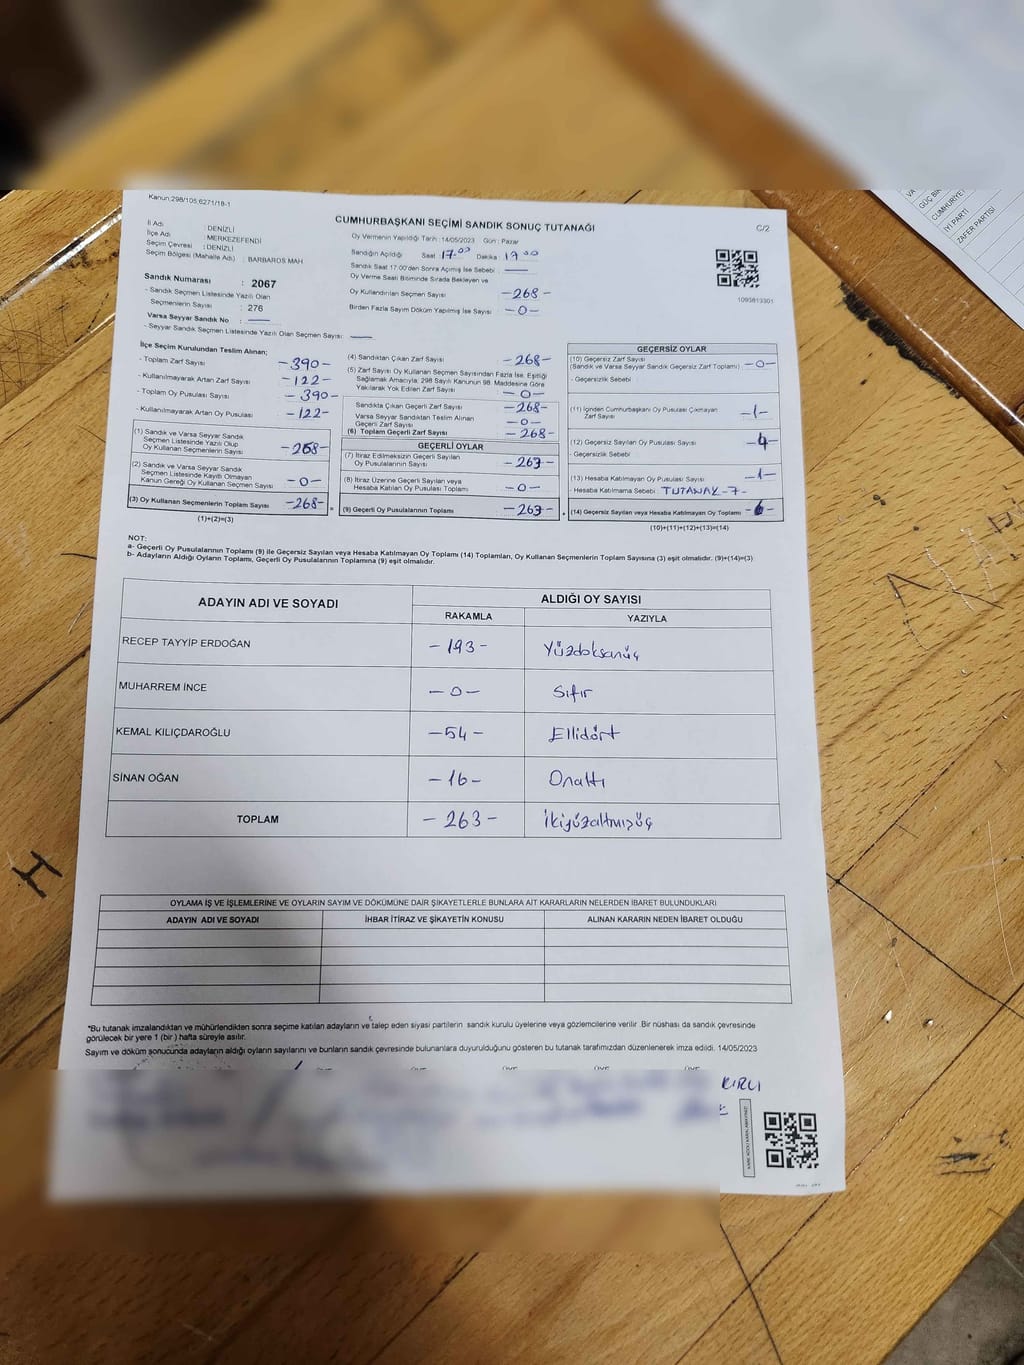 Kanun,298/105,6271/18-1
CUMHURBAŞKANI SEÇİMİ SANDIK SONUÇ TUTANAĞI
C/2
İl Adı : DENİZLİ
İlçe Adı : MERKEZEFENDİ
Seçim Çevresi : DENİZLİ
Seçim Bölgesi (Mahalle Adı) : BARBAROS MAH
Oy Vermenin Yapıldığı Tarih :14/05/2023 Gün : Pazar
Sandığın Açıldığı Saat 17.00 Dakika : 17 00
Sandık Saat 17:00'den Sonra Açılmış İse Sebebi :
Oy Verme Saati Bitiminde Sırada Bekleyen ve
Oy Kullandırılan Seçmen Sayısı -268-
Birden Fazla Sayım Döküm Yapılmış İse Sayısı -0-
1095813301
Sandık Numarası : 2067
- Sandık Seçmen Listesinde Yazılı Olan
Seçmenlerin Sayısı : 276
Varsa Seyyar Sandık No :
- Seyyar Sandık Seçmen Listesinde Yazılı Olan Seçmen Sayısı:
İlçe Seçim Kurulundan Teslim Alınan;
- Toplam Zarf Sayısı -390-
- Kullanılmayarak Artan Zarf Sayısı -122-
- Toplam Oy Pusulası Sayısı - 390-
- Kullanılmayarak Artan Oy Pusulası -122-
(1) Sandık ve Varsa Seyyar Sandık
Seçmen Listesinde Yazılı Olup
Oy Kullanan Seçmenlerin Sayısı -268-
(2) Sandık ve Varsa Seyyar Sandık
Seçmen Listesinde Kayıtlı Olmayan
Kanun Gereği Oy Kullanan Seçmen Sayısı -0-
(3) Oy Kullanan Seçmenlerin Toplam Sayısı -268-
(1)+(2)=(3)
(4) Sandıktan Çıkan Zarf Sayısı -268-
(5) Zarf Sayısı Oy Kullanan Seçmen Sayısından Fazla İse, Eşitliği
Sağlamak Amacıyla; 298 Sayılı Kanunun 98. Maddesine Göre
Yakılarak Yok Edilen Zarf Sayısı : -0-
Sandıkta Çıkan Geçerli Zarf Sayısı -268-
Varsa Seyyar Sandıktan Teslim Alınan
Geçerli Zarf Sayısı -0-
(6) Toplam Geçerli Zarf Sayısı -268-
GEÇERLİ OYLAR
(7) İtiraz Edilmeksizin Geçerli Sayılan
Oy Pusulalarının Sayısı -263-
(8) İtiraz Üzerine Geçerli Sayılan veya
Hesaba Katılan Oy Pusulası Toplamı -0-
(9) Geçerli Oy Pusulalarının Toplamı -263-
GEÇERSİZ OYLAR
(10) Geçersiz Zarf Sayısı
(Sandık ve Varsa Seyyar Sandık Geçersiz Zarf Toplamı) -0-
- Geçersizlik Sebebi :
(11) İçinden Cumhurbaşkanı Oy Pusulası Çıkmayan
Zarf Sayısı -1-
(12) Geçersiz Sayılan Oy Pusulası Sayısı -4-
- Geçersizlik Sebebi :
(13) Hesaba Katılmayan Oy Pusulası Sayısı -1-
- Hesaba Katılmama Sebebi : TUTANAK -7-
(14) Geçersiz Sayılan veya Hesaba Katılmayan Oy Toplamı -6-
(10)+(11)+(12)+(13)=(14)
NOT:
a- Geçerli Oy Pusulalarının Toplamı (9) ile Geçersiz Sayılan veya Hesaba Katılmayan Oy Toplamı (14) Toplamları, Oy Kullanan Seçmenlerin Toplam Sayısına (3) eşit olmalıdır. (9)+(14)=(3)
b- Adayların Aldığı Oyların Toplamı, Geçerli Oy Pusulalarının Toplamına (9) eşit olmalıdır.
ADAYIN ADI VE SOYADI ALDIĞI OY SAYISI
RAKAMLA YAZIYLA
RECEP TAYYİP ERDOĞAN -193- Yüzdoksanüç
MUHARREM İNCE -0- Sıfır
KEMAL KILIÇDAROĞLU -54- Ellidört
SİNAN OĞAN -16- Onaltı
TOPLAM -263- İkiyüzaltmışüç
OYLAMA İŞ VE İŞLEMLERİNE VE OYLARIN SAYIM VE DÖKÜMÜNE DAİR ŞİKAYETLERLE BUNLARA AİT KARARLARIN NELERDEN İBARET BULUNDUKLARI
ADAYIN ADI VE SOYADI İHBAR İTİRAZ VE ŞİKAYETİN KONUSU ALINAN KARARIN NEDEN İBARET OLDUĞU
*Bu tutanak imzalandıktan ve mühürlendikten sonra seçime katılan adayların ve talep eden siyasi partilerin sandık kurulu üyelerine veya gözlemcilerine verilir. Bir nüshası da sandık çevresinde
görülecek bir yere 1 (bir ) hafta süreyle asılır.
Sayım ve döküm sonucunda adayların aldığı oyların sayılarını ve bunların sandık çevresinde bulunanlara duyurulduğunu gösteren bu tutanak tarafımızdan düzenlenerek imza edildi. 14/05/2023
GÜÇ BİR
CUMHURİYET
İYİ PARTİ
ZAFER PARTİSİ
H